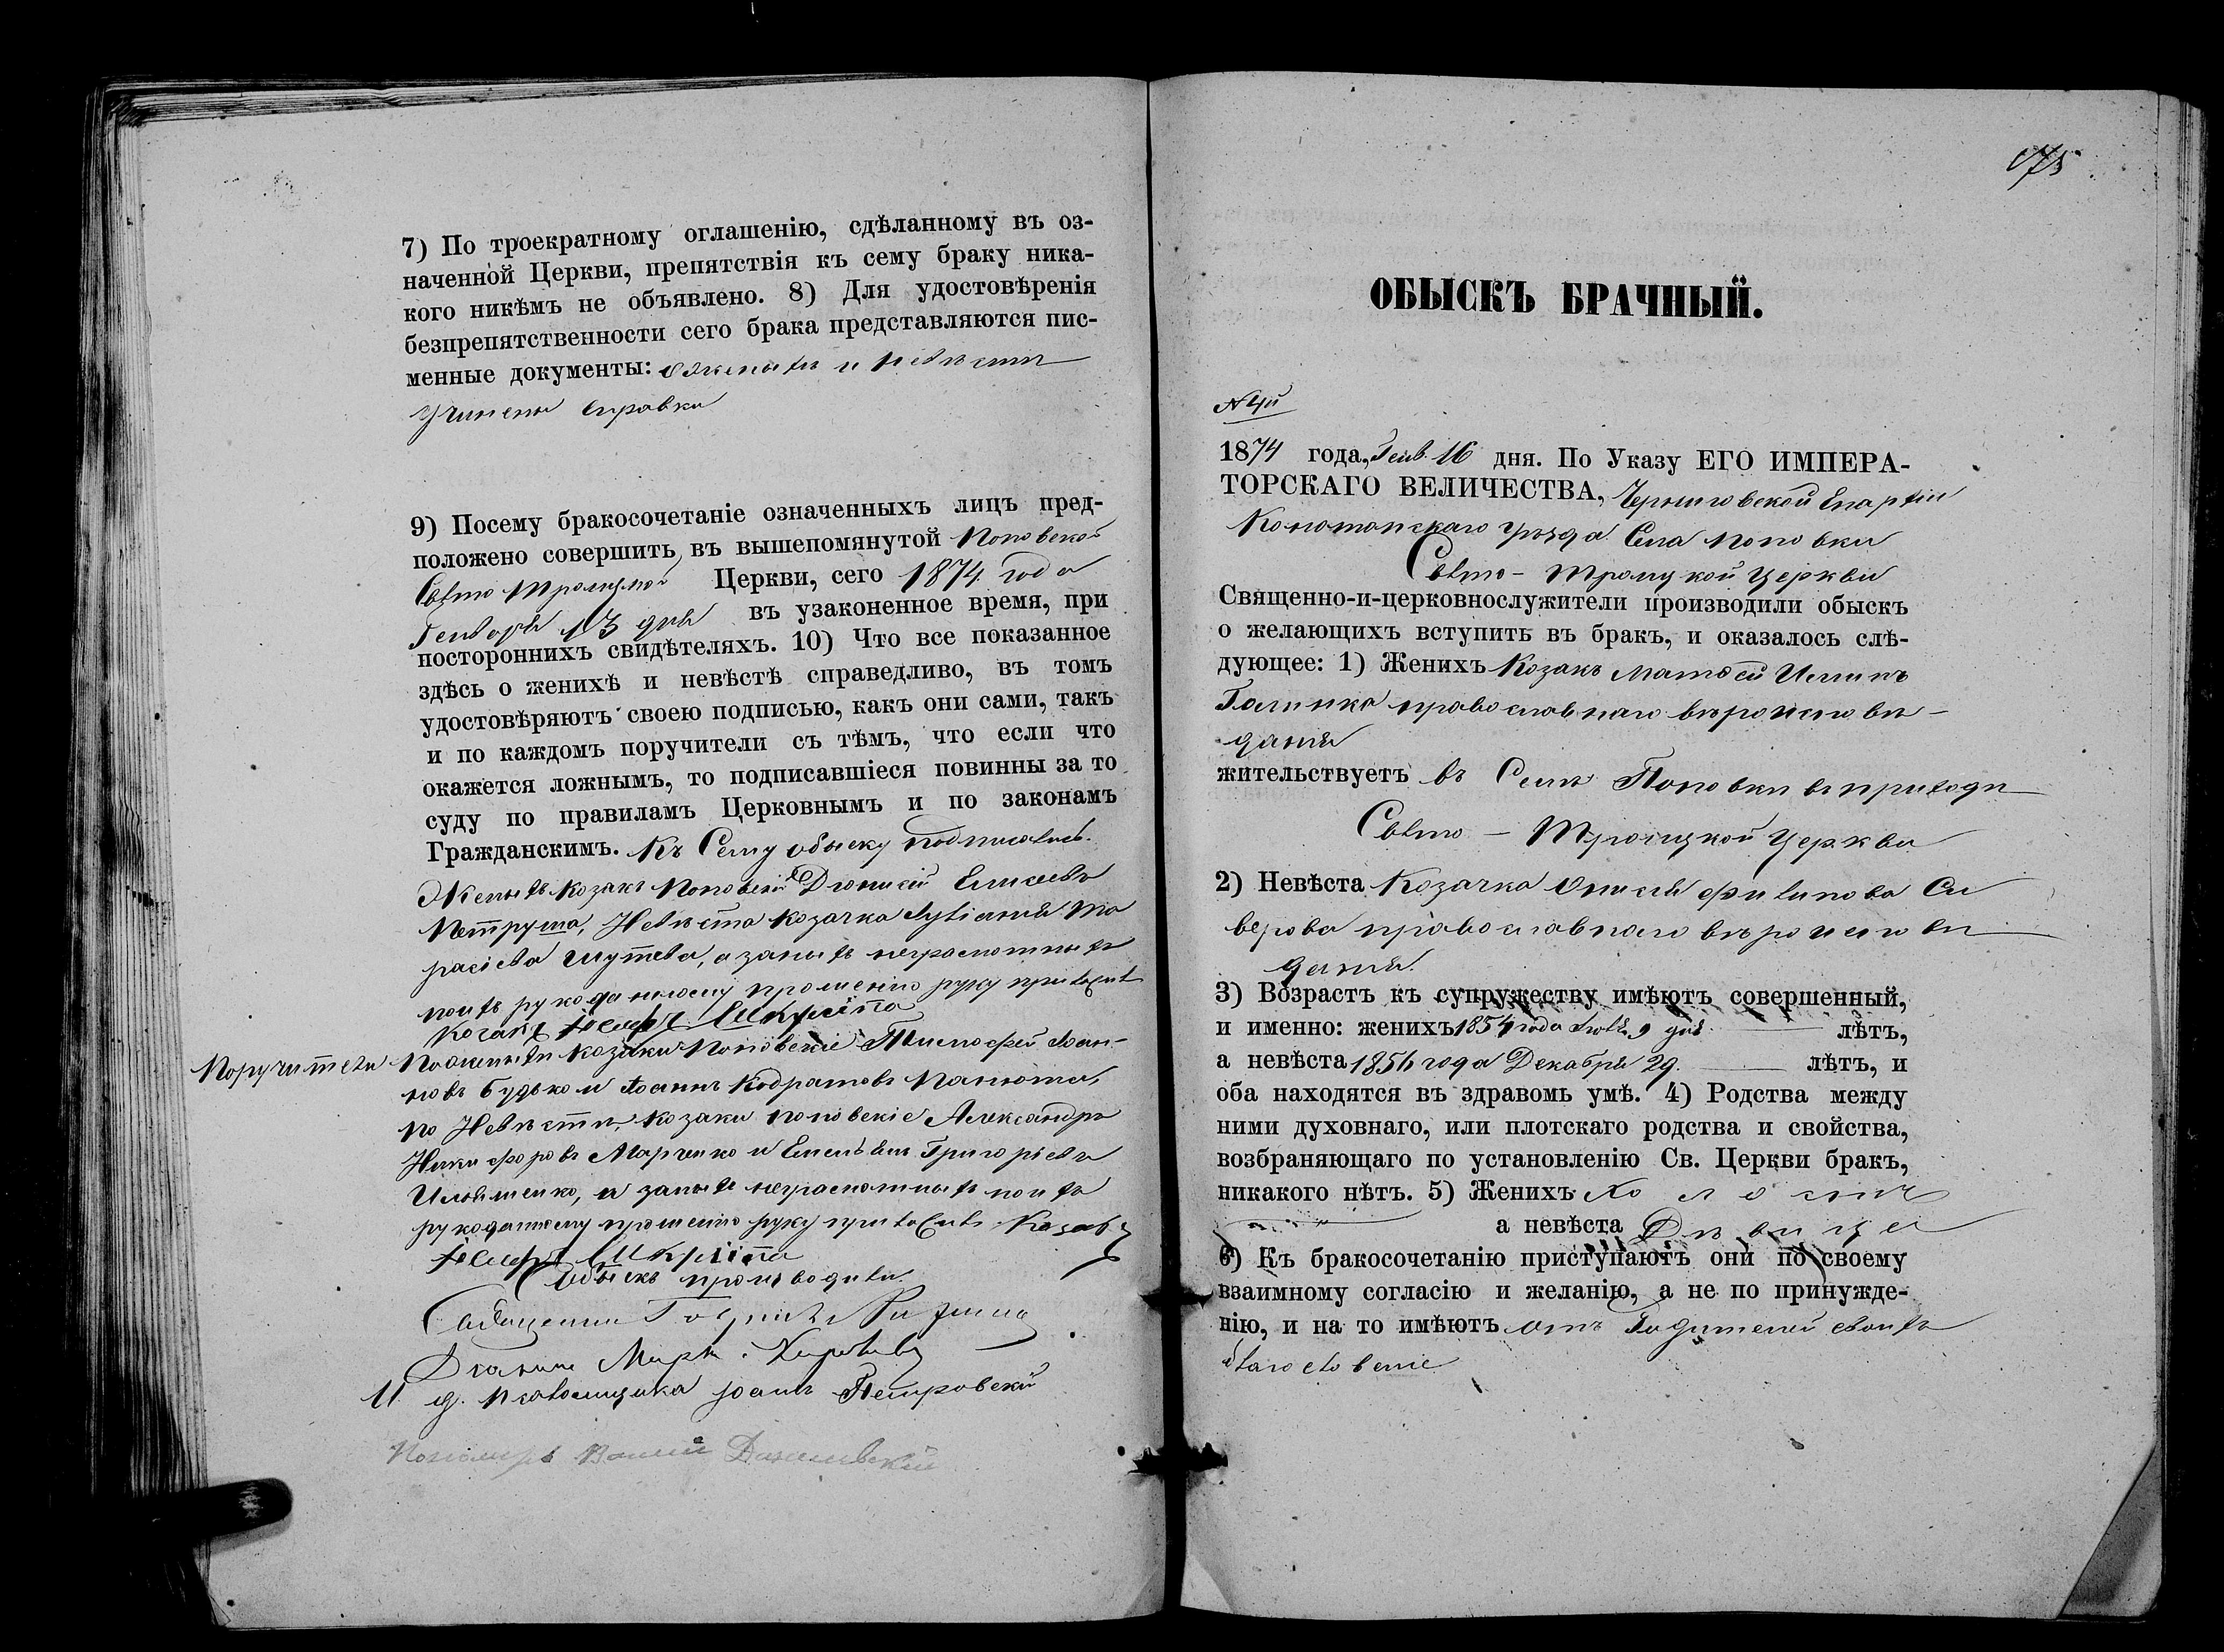 7) По троекратному оглашенію, сдѣланному въ оз-
наченной Церкви, препятствія къ сему браку ника-
кого никѣмъ не объявлено. 8) Для удостовѣренія
безпрепятственности сего брака представляются пис-
менные документы: о женихѣ и невѣсти
учинены справки
9) Посему бракосочетаніе означенныхъ лицъ пред-
положено совершить въ вышепомянутой Поповской
Свято Троицкой Церкви, сего 1874 года
Генваря 13 дня въ узаконенное время, при
постороннихъ свидѣтеляхъ. 10) Что все показанное
здѣсь о женихѣ и невѣстѣ справедливо, въ томъ
удостовѣряютъ своею подписью, какъ они сами, такъ
и по каждомъ поручители съ тѣмъ, что если что
окажется ложнымъ, то подписавшіеся повинны за то
суду по правиламъ Церковнымъ и по законамъ
Гражданскимъ. Къ Сему обыску подписались.
Женихъ козакъ Поповскій Діонисій Елисеевъ
Петруша, Невѣста козачка
а за нихъ неграмотныхъ
по ихъ рукоданному прошенію руку приложилъ
Козакъ
Поручители По женихѣ козаки Поповскіе Тимофей Іоан-
новъ Будько и Іоаннъ Кодратовъ Панюта,
по Невѣсти, козаки поповскіе Александръ
Никифоровъ Марченко и Григорьевъ
Ильяшенко, а за нихъ неграмотныхъ по ихъ
рукоданному прошенію руку приложилъ Козакъ
Обыскъ производили
Священникъ
Діаконъ
И. д. Псаломщика Іоаннъ Петровскій
Пономарь
175
ОБЫСКЪ БРАЧНЫЙ.
№ 4й
1874 года, Генв. 16 дня. По Указу ЕГО ИМПЕРА-
ТОРСКАГО ВЕЛИЧЕСТВА, Черниговской Епархіи
Конотопскаго уѣзда Села Поповки
Свято-Троицкой Церкви
Священно-и-церковнослужители производили обыскъ
о желающихъ вступить въ бракъ, и оказалось слѣ-
дующее: 1) Женихъ Козакъ Матѳей
православнаго вѣроисповѣ-
данія
жительствуетъ въ Селѣ Поповки въ приходи
Свято-Троицкой Церкви
2) Невѣста Козачка Онисія Филипова Си
верова православнаго вѣроисповѣ
данія.
3) Возрастъ къ супружеству имѣютъ совершенный,
и именно: женихъ 1854 года 9 дня лѣтъ,
а невѣста 1856 года Декабря 29. лѣтъ, и
оба находятся въ здравомь умѣ. 4) Родства между
ними духовнаго, или плотскаго родства и свойства,
возбраняющаго по установленію Св. Церкви бракъ,
никакого нѣтъ. 5) Женихъ Холостъ
а невѣста Дѣвица
6) Къ бракосочетанію приступаютъ они по своему
взаимному согласію и желанію, а не по принужде-
нію, и на то имѣютъ отъ Родителей своихъ
благословеніе